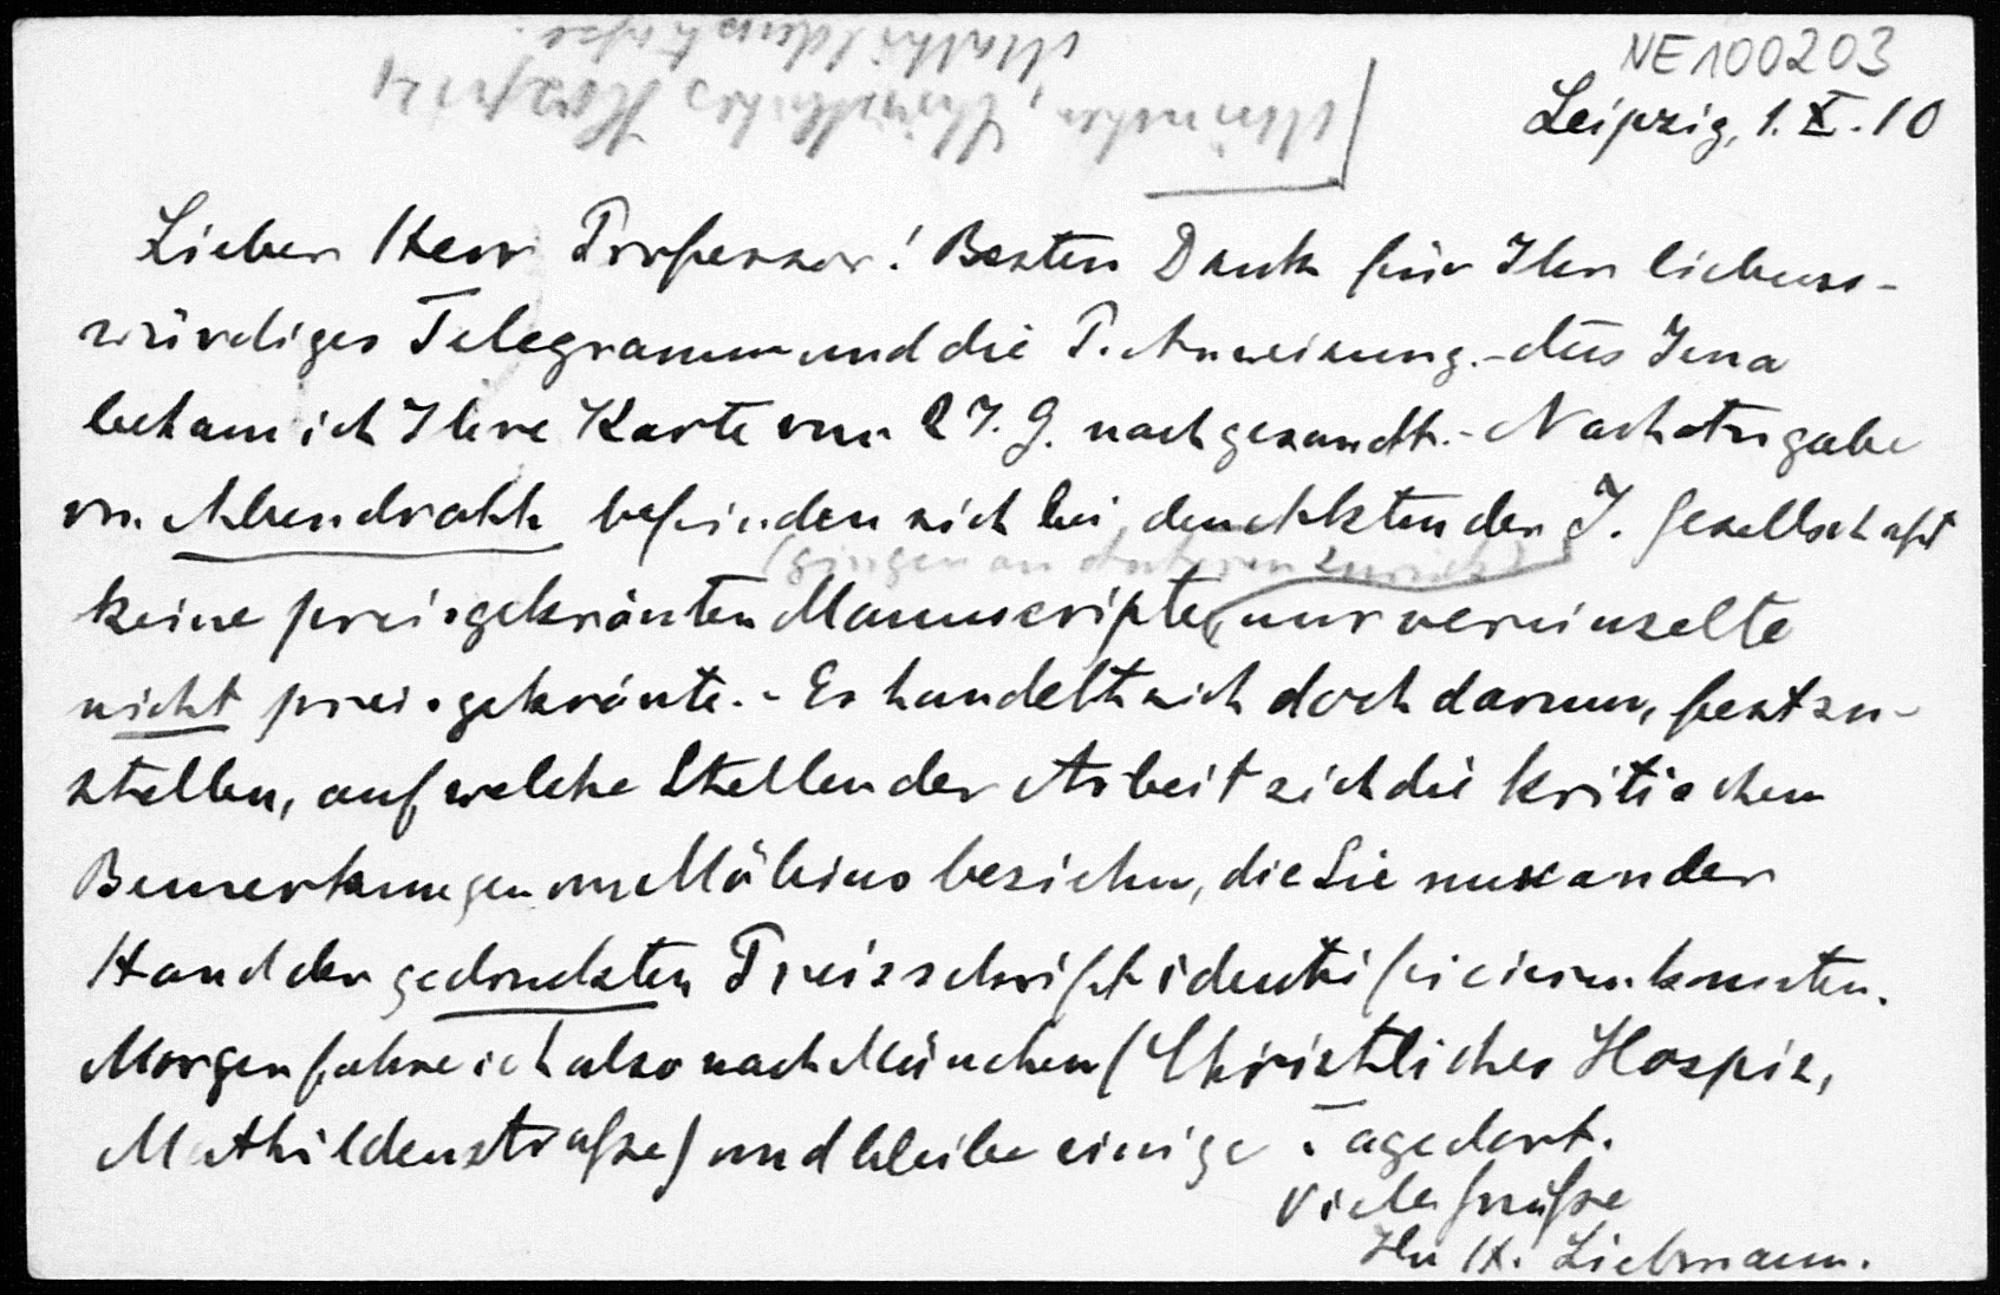 NE100203
Leipzig, 1. X. 10
München, Christliches Hospiz
Mathildenstraße.
Lieber Herr Professor! Besten Dank für Ihr liebens-
würdiges Telegramm und die P. Anweisung. - aus Jena
bekam ich Ihre Karte vom 27. 9. nachgesandt. - Nach Angabe
von Abendroth befinden sich bei den Akten der J. Gesellschaft
(gingen an Autoren zurück)
keine preisgekrönten Manuscripte, nur vereinzelte
nicht preisgekrönte. - Es handelt sich doch darum, festzu-
stellen, auf welche Stellen der Arbeit sich die kritischen
Bemerkungen von Möbius beziehn, die Sie nur an der
Hand der gedruckten Preisschrift identificieren konnten.
Morgen fahre ich also nach München (Christliches Hospiz,
Mathildenstraße) und bleibe einige Tage dort.
Viele Grüße
Ihr H. Liebmann.